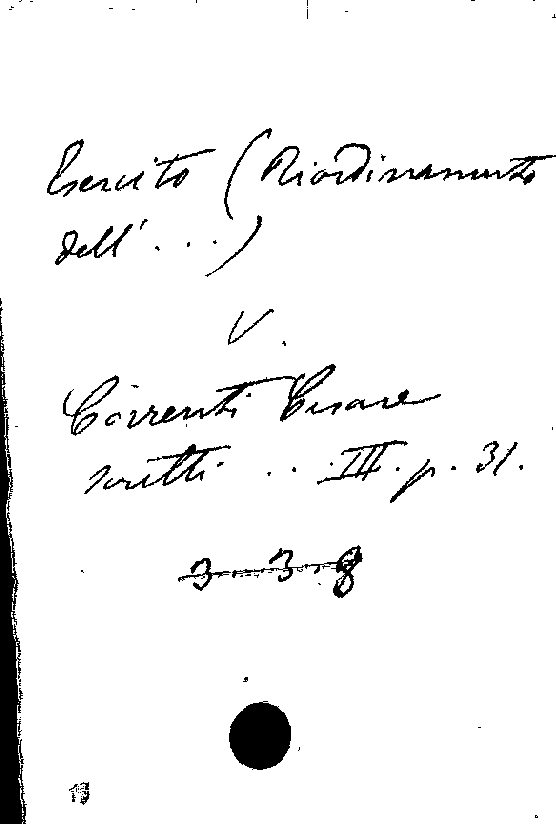 Esercito (Riordinamento
dell'...)
V.
Correnti Cesare
scritti ... III. p. 31.
3 . 3 . 8